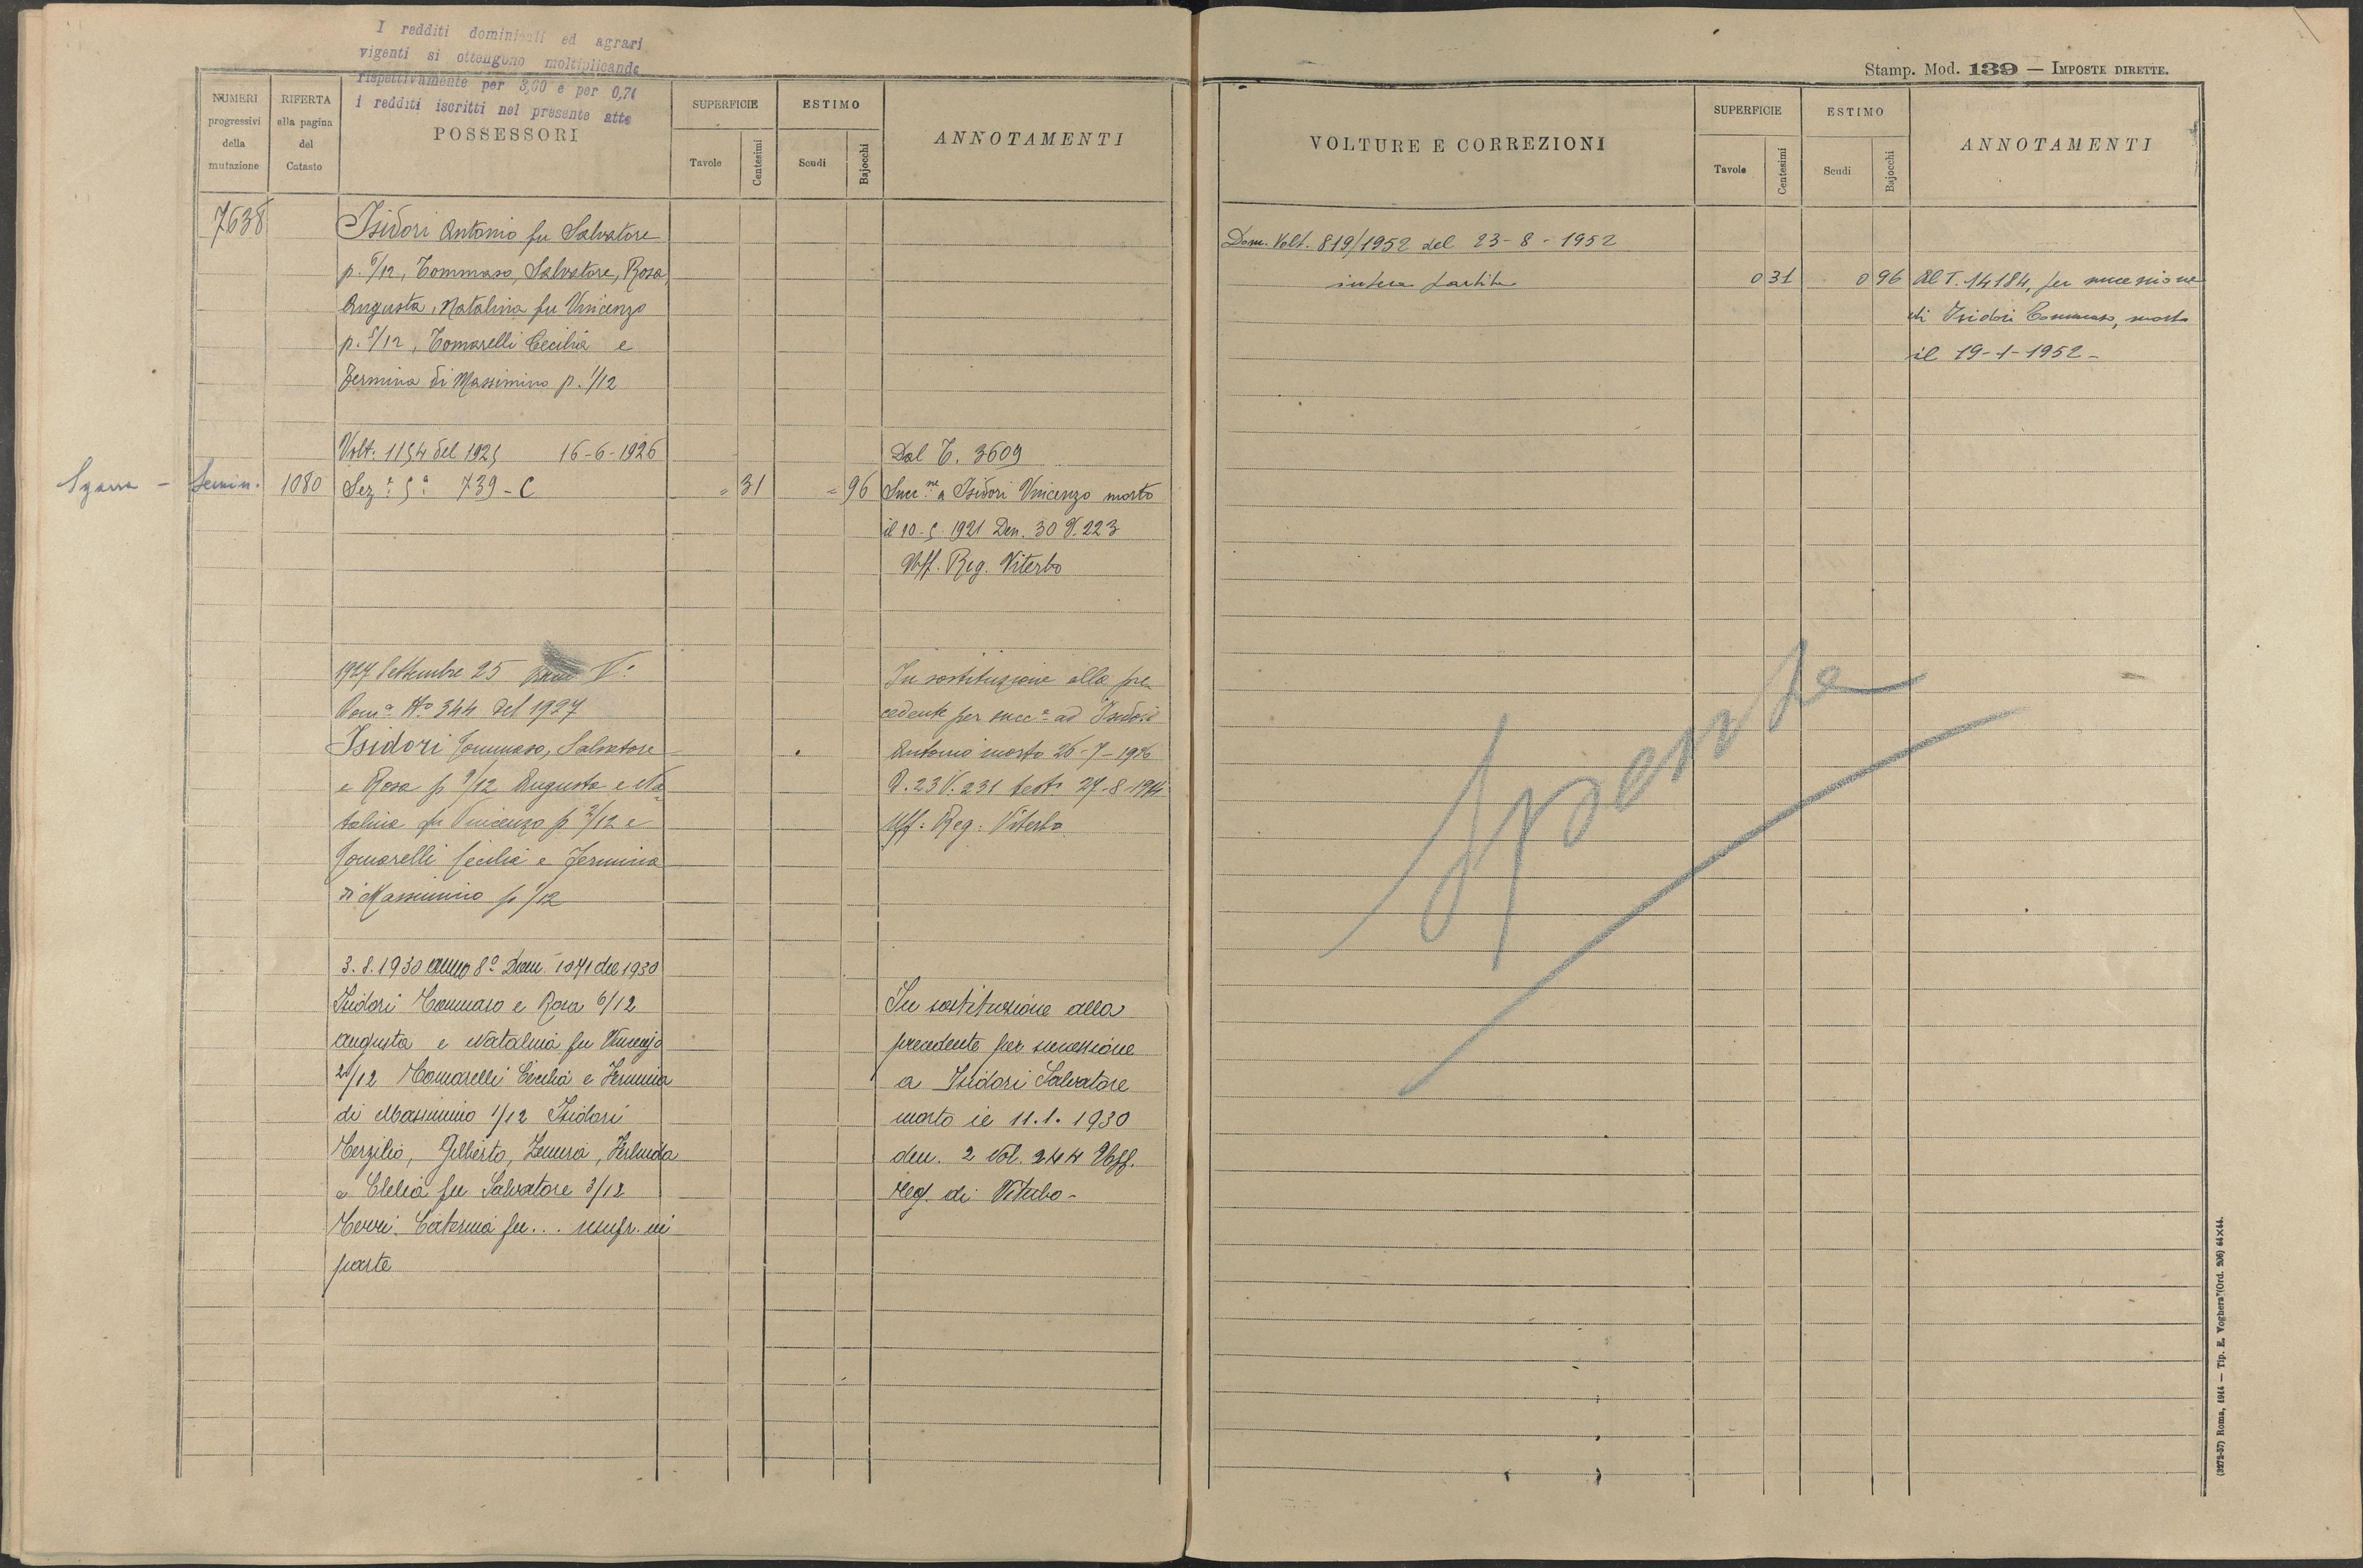 I redditi dominicali ed agrari
vigenti si ottengono moltiplicando
rispettivamente per 3,00 e per 0,70
i redditi iscritti nel presente atto
NUMERI progressivi della mutazione
RIFERTA alla pagina del Catasto
POSSESSORI
SUPERFICIE
Tavole
Centesimi
ESTIMO
Scudi
Bajocchi
ANNOTAMENTI
7638
Isidori Antonio fu Salvatore
p. 6/12, Tommaso, Salvatore, Rosa,
Augusta, Natalina fu Vincenzo
p. 5/12, Tomarelli Cecilia e
Fermina di Massimino p. 1/12
Volt. 1154 del 1925 16-6-1926
Dal T. 3609
Semin. 1080 Sez.e 5a 739-C = 31 = 96 Succ.ne a Isidori Vincenzo morto
il 10-5-1921 Den. 30 V. 223
Uff. Reg. Viterbo
1927 Settembre 25 V°
Dom.a N° 344 del 1927
Isidori Tommaso, Salvatore
e Rosa p 9/12 Augusta e Na=
talina fu Vincenzo p 2/12 e
Tomarelli Cecilia e Fermina
di Massimino p 1/12
In sostituzione alla pre
cedente per succ.e ad Isidori
Antonio morto 26-7-1926
D. 23 V. 231 test.
Uff. Reg. Viterbo
3.8.1930 anno 8° Dom. 1071 del 1930
Isidori Tommaso e Rosa 6/12
Augusta e Natalina fu Vincenzo
2/12 Tomarelli Cecilia e Fermina
di Massimino 1/12 Isidori
Terzilio, Gilberto,
e Clelia fu Salvatore 3/12
Caterina fu... usufr. in
parte
In sostituzione alla
precedente per successione
a Isidori Salvatore
morto il 11.1.1930
den. 2 Vol. 244 Uff.
reg. di Viterbo-
Stamp. Mod. 139 — IMPOSTE DIRETTE.
VOLTURE E CORREZIONI
SUPERFICIE
Tavole
Centesimi
ESTIMO
Scudi
Bajocchi
ANNOTAMENTI
Dom. Volt. 819/1952 del 23-8-1952
intera partita 0 31 0 96 Al T. 14184, per successione
di Isidori Tommaso, morto
il 19-1-1952-
Spenta
(3272-57) Roma, 1914 — Tip. E. Voghera (Ord. 206) 64×44.